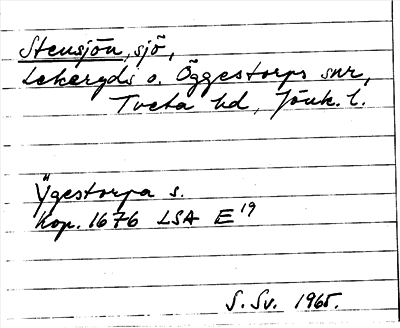 Stensjön, sjö,
Lekeryds o. Öggestorps snr,
Tveta hd, Jönk. l.
Ÿgestorpa s.
Kop. 1676 LSA E 19
S. Sv. 1965.